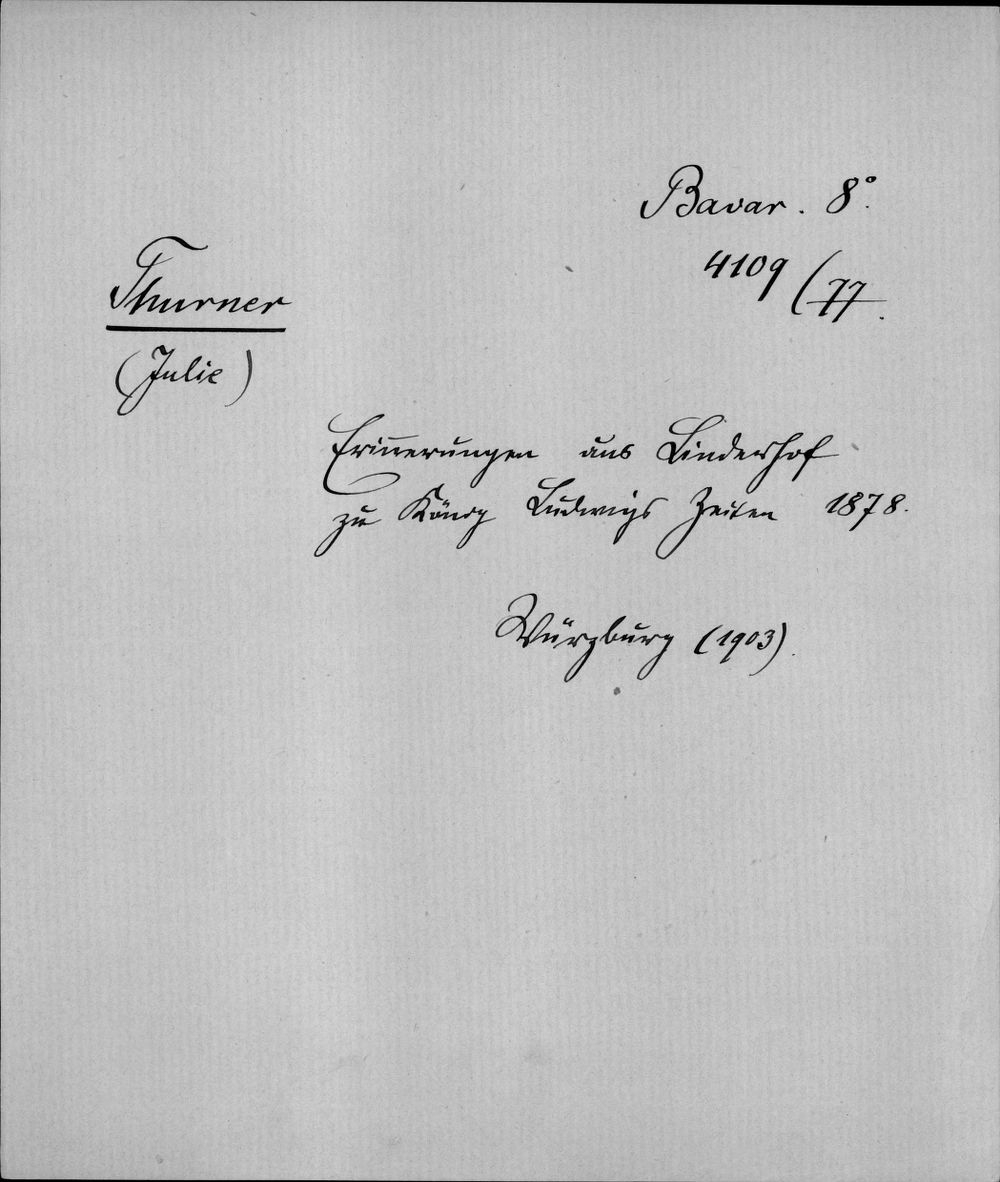 Bavar. 8°.
4109 (77.
Thurner
(Julie)
Erinnerungen aus Linderhof
zu König Ludwigs Zeiten 1878.
Würzburg (1903).